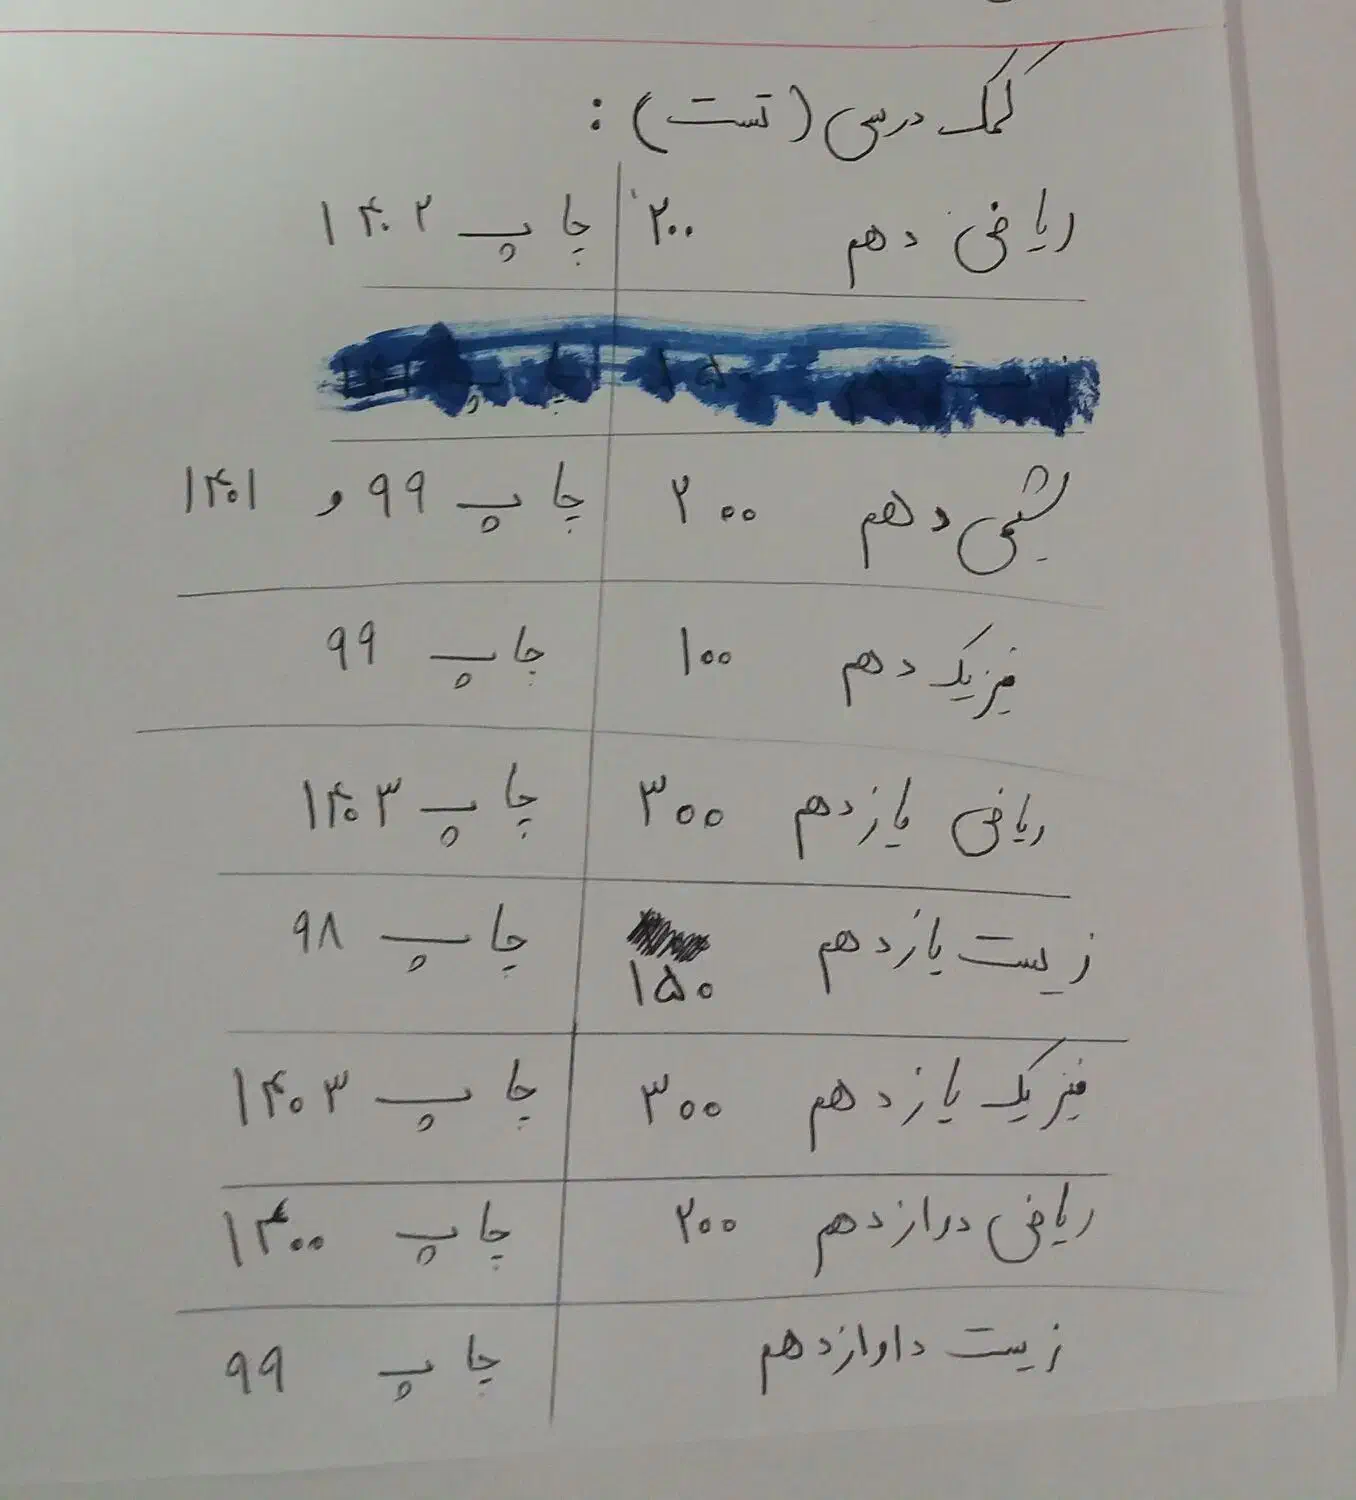 کمک درسی (تست) :
ریاضی دهم ۲۰۰ چاپ ۱۴۰۲
شیمی دهم ۲۰۰ چاپ ۹۹ و ۱۴۰۱
فیزیک دهم ۱۰۰ چاپ ۹۹
ریاضی یازدهم ۳۰۰ چاپ ۱۴۰۳
زیست یازدهم ۱۵۰ چاپ ۹۸
فیزیک یازدهم ۳۰۰ چاپ ۱۴۰۳
ریاضی دوازدهم ۲۰۰ چاپ ۱۴۰۰
زیست داوازدهم چاپ ۹۹